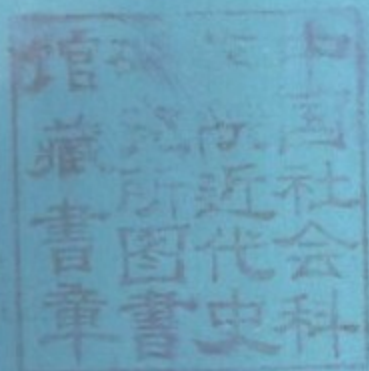 中国社会科
学院近代史
研究所图书
馆藏書章